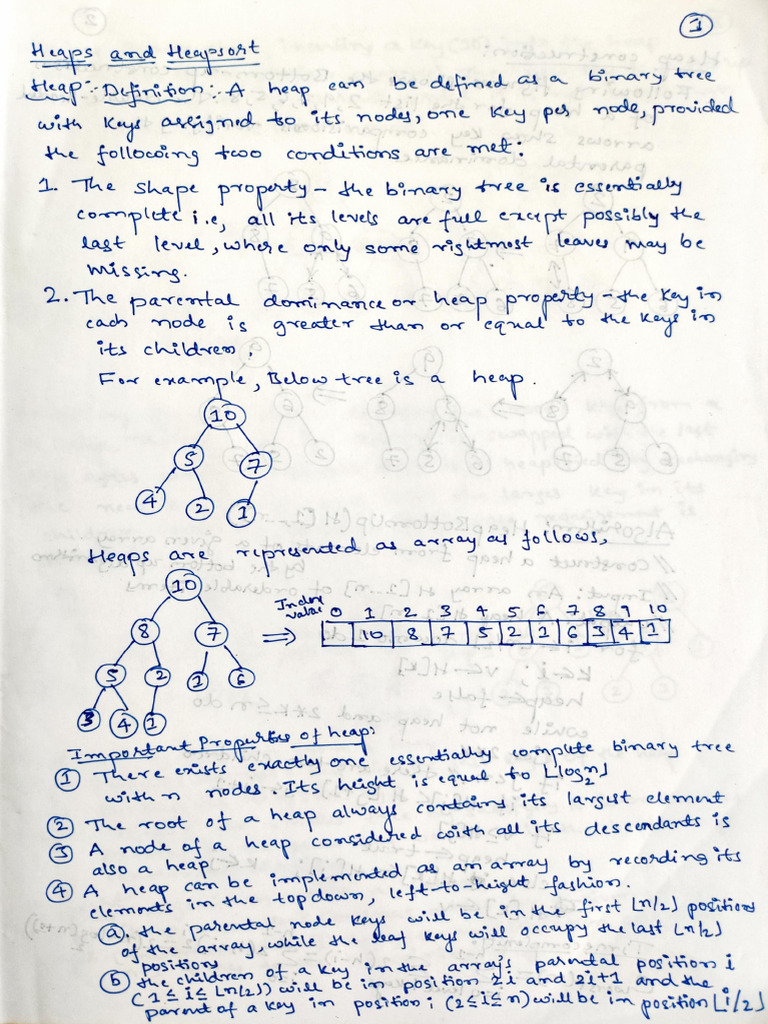 1
Heaps and Heapsort
Heap:- Definition:- A heap can be defined as a binary tree
with keys assigned to its nodes, one key per node, provided
the following two conditions are met:
1. The shape property - the binary tree is essentially
complete i.e, all its levels are full except possibly the
last level, where only some rightmost leaves may be
missing.
2. The parental dominance or heap property - the key in
each node is greater than or equal to the keys in
its children.
For example, Below tree is a heap.
10
5 7
4 2 1
Heaps are represented as array as follows,
10
8 7
5 2 1 6
3 4 1
⇒ Index value 0 1 2 3 4 5 6 7 8 9 10
10 8 7 5 2 1 6 3 4 1
Important Properties of heap:
1 There exists exactly one essentially complete binary tree
with n nodes. Its height is equal to ⌊log₂n⌋
2 The root of a heap always contains its largest element
3 A node of a heap considered with all its descendants is
also a heap
4 A heap can be implemented as an array by recording its
elements in the top down, left-to-height fashion.
a. the parental node keys will be in the first ⌊n/2⌋ position
of the array, while the leaf keys will occupy the last ⌊n/2⌋
position
b the children of a key in the array's parental position i
(1 ≤ i ≤ ⌊n/2⌋) will be in position 2i and 2i+1 and the
parent of a key in position i (2 ≤ i ≤ n) will be in position ⌊i/2⌋